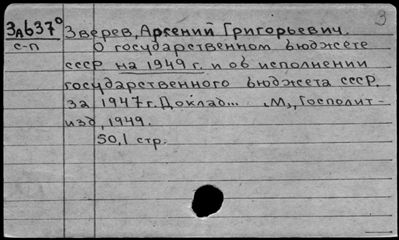 3
3д637° Зверев, Арсений Григорьевич.
с-п О государственном бюджете
СССР на 1949 г. и об исполнении
государственного бюджета СССР.
за 1947 г. Доклад... М., Госполит-
изд, 1949.
50,1 стр.